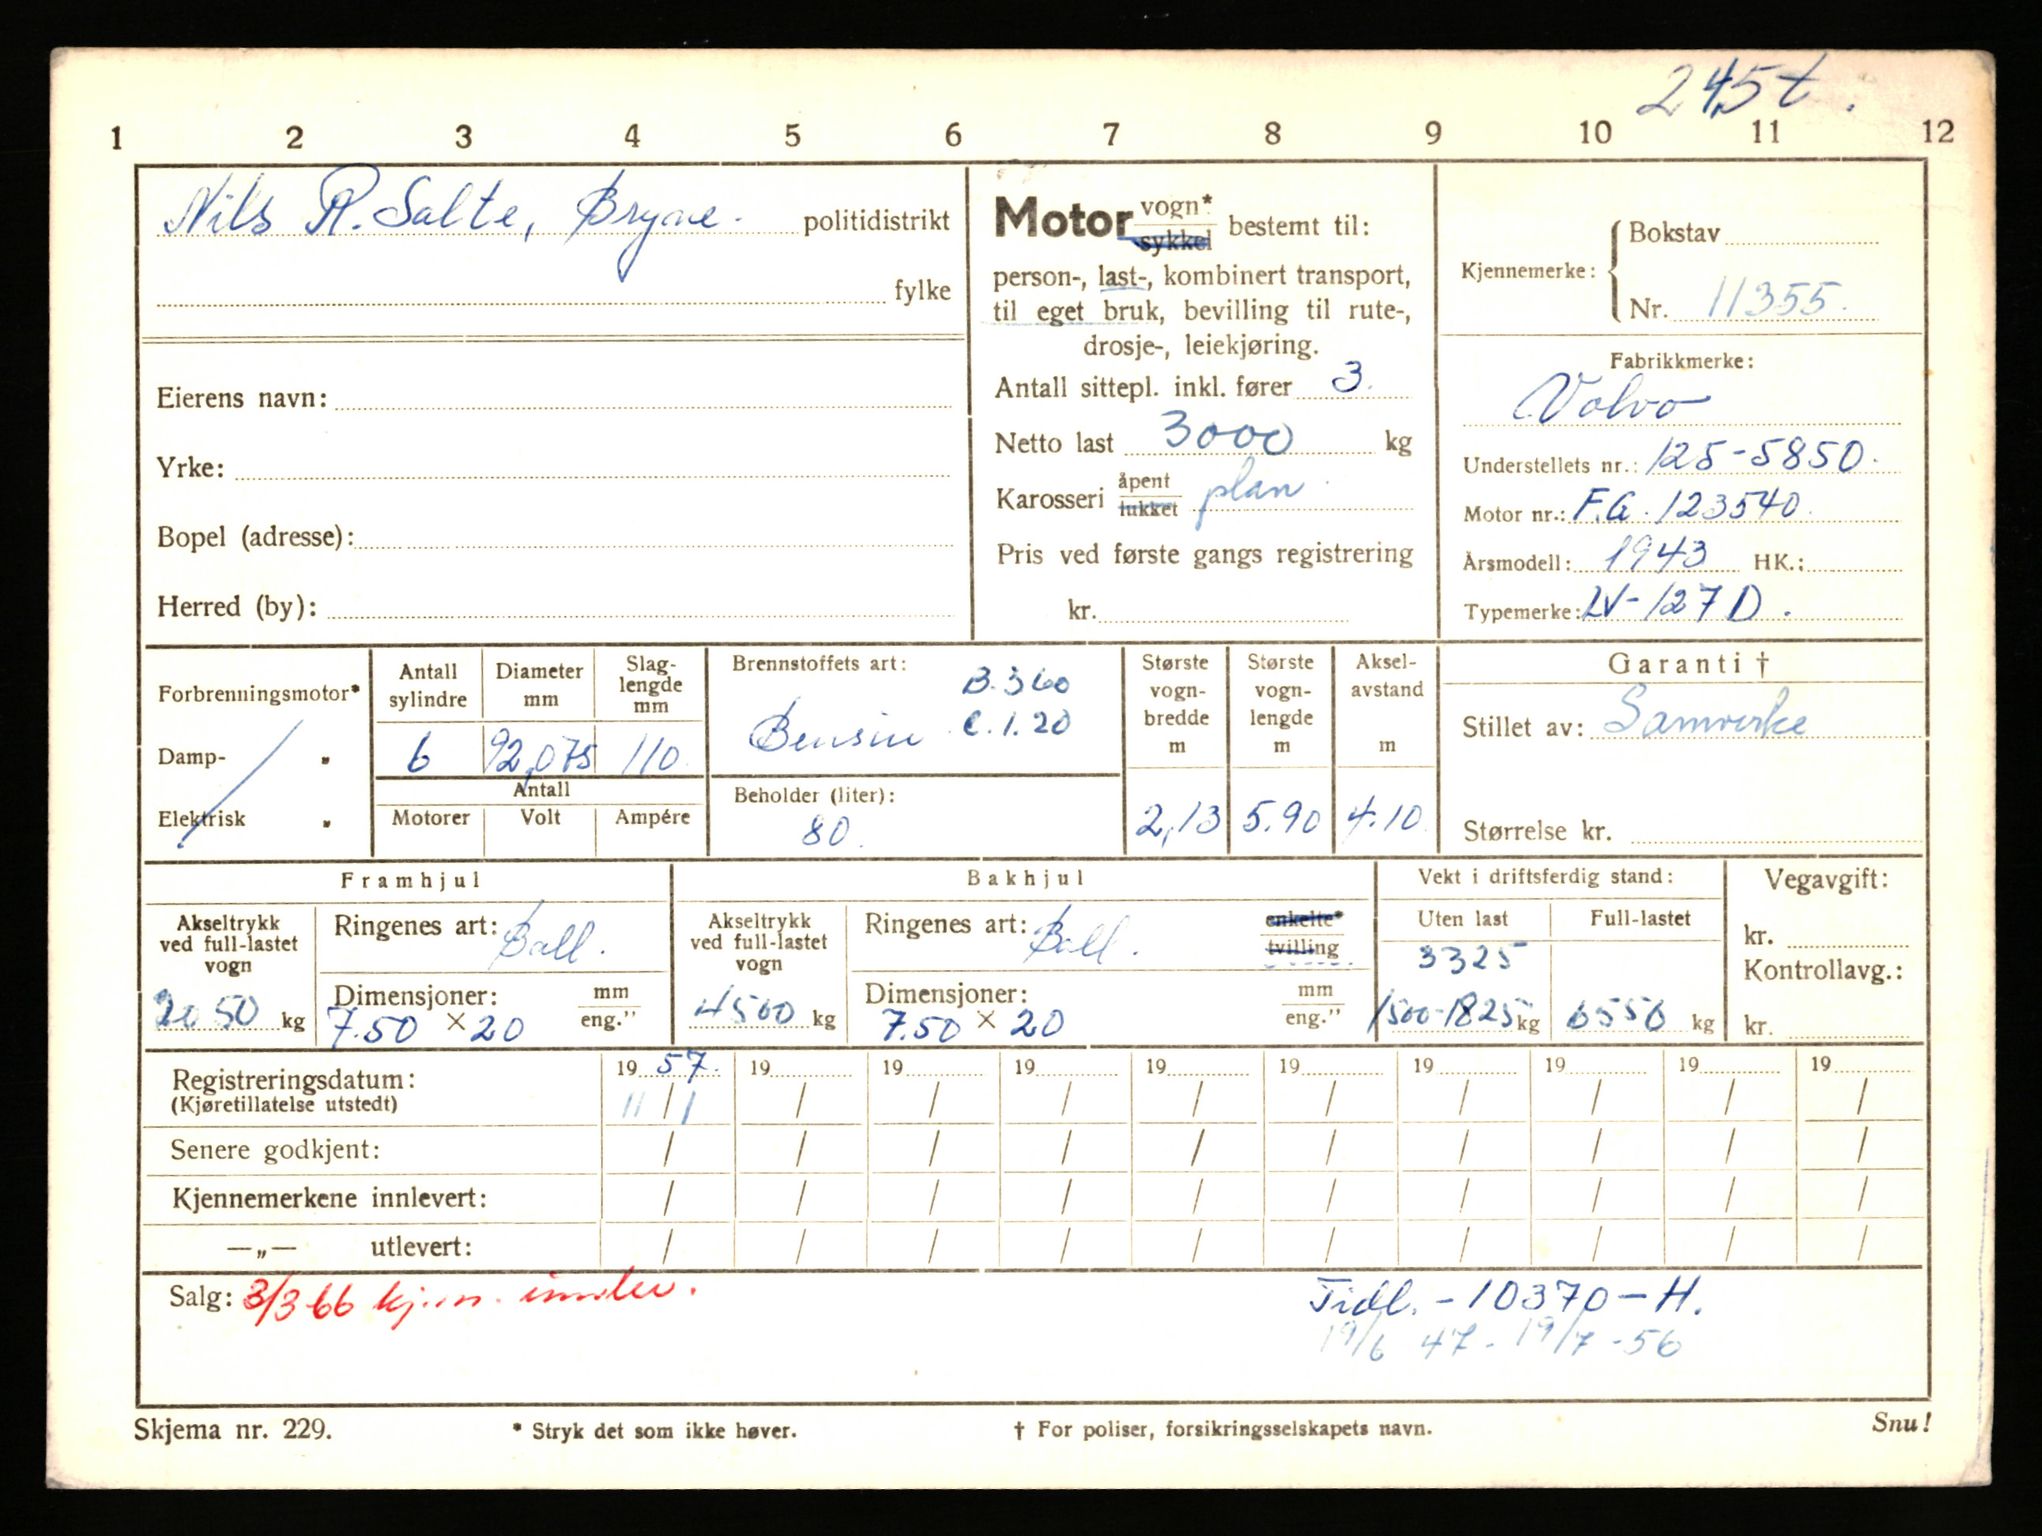 245t.
1 2 3 4 5 6 7 8 9 10 11 12
Nils R. Salte, Bryne. politidistrikt
fylke
Eierens navn:
Yrke:
Bopel (adresse):
Herred (by):
Motor vogn* sykkel bestemt til:
person-, last-, kombinert transport,
til eget bruk, bevilling til rute-,
drosje-, leiekjøring.
Antall sittepl. inkl. fører 3.
Netto last 3000 kg
Karosseri åpent lukket plan
Pris ved første gangs registrering
kr.
Kjennemerke: Bokstav
Nr. 11355.
Fabrikkmerke:
Volvo
Understellets nr.: 125-5850.
Motor nr.: F.G. 123540.
Årsmodell: 1943 HK.:
Typemerke: LV-127D.
Forbrenningsmotor*
Damp- "
Elektrisk "
Antall sylindre
6
Diameter mm
92,075
Slag-
lengde
mm
110
Antall
Motorer Volt Ampére
Brennstoffets art: B.360
Bensin C.1.20
Beholder (liter):
80.
Største
vogn-
bredde
m
2,13
Største
vogn-
lengde
m
5.90
Aksel-
avstand
m
4.10
Garanti †
Stillet av: Samvirke
Størrelse kr.
Framhjul
Akseltrykk
ved full-lastet
vogn
2050 kg
Ringenes art: Ball.
Dimensjoner: mm eng."
7.50 × 20
Bakhjul
Akseltrykk
ved full-lastet
vogn
4500 kg
Ringenes art: Ball. enkelte* tvilling
Dimensjoner: mm eng."
7.50 × 20
Vekt i driftsferdig stand:
Uten last Full-lastet
3325
1500-1825 kg 6550 kg
Vegavgift:
kr.
Kontrollavg.:
kr.
Registreringsdatum: 19 57. 19 19 19 19 19 19 19 19 19
(Kjøretillatelse utstedt) 11/1 / / / / / / / / /
Senere godkjent: / / / / / / / / / /
Kjennemerkene innlevert: / / / / / / / / / /
—„— utlevert: / / / / / / / / / /
Salg: 3/3 66 kj.m. innlev.
Tidl. - 10370 - H.
19/6 47 - 19/7 - 56
Skjema nr. 229.
* Stryk det som ikke høver.
† For poliser, forsikringsselskapets navn.
Snu!